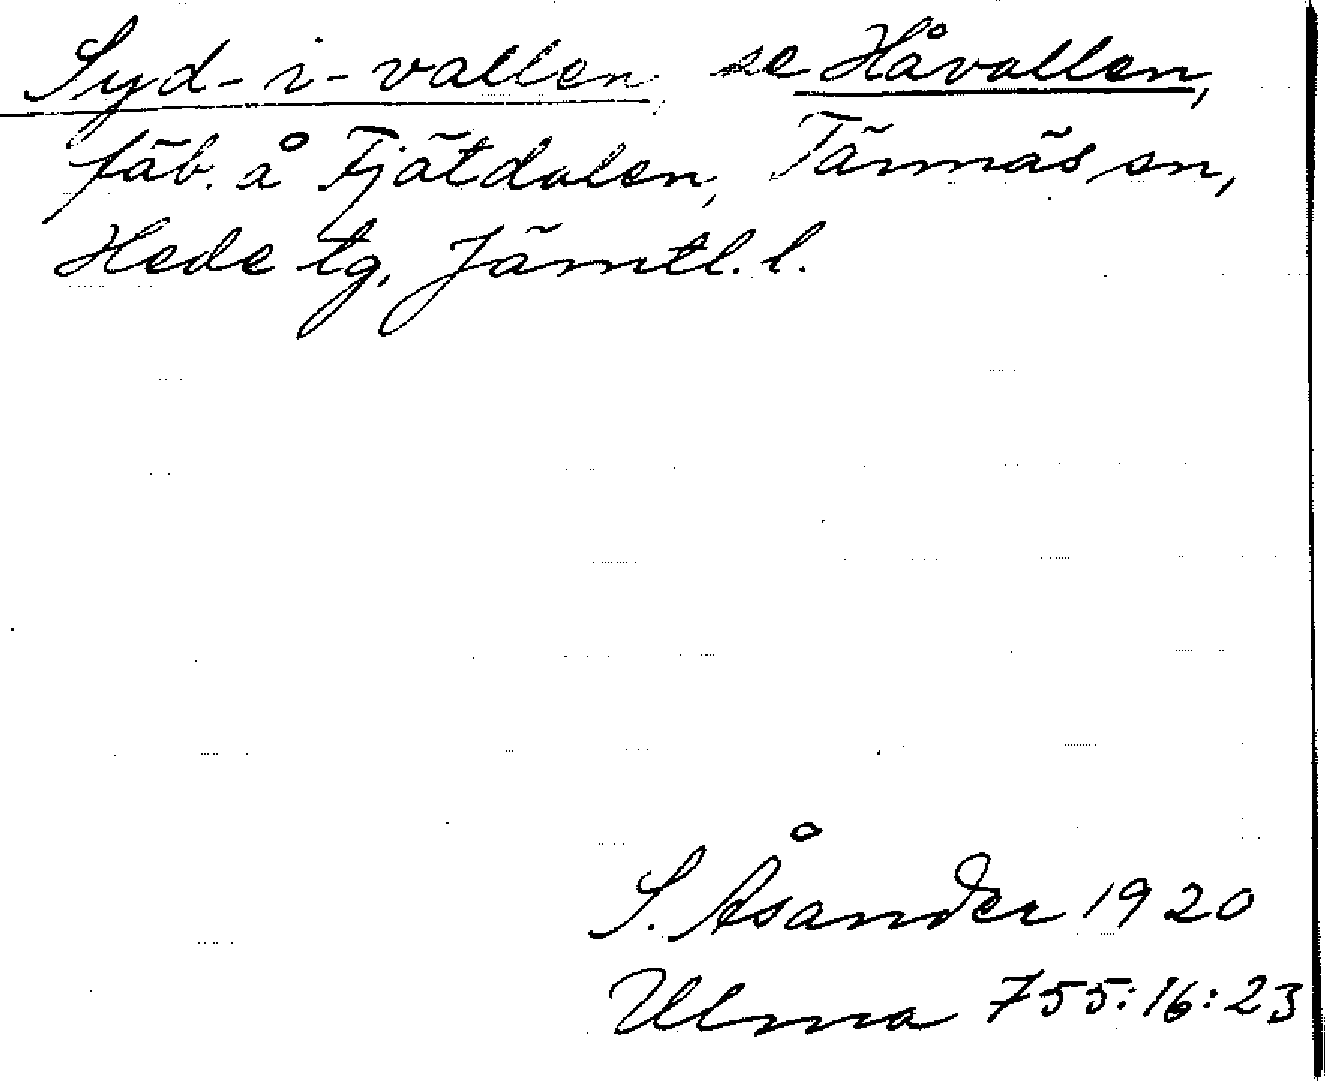 Syd-i-vallen se Håvallen,
fäb. å Fjätdalen, Tännäs sn,
Hede tg, Jämtl. l.
S. Åsander 1920
Ulma 755:16:23